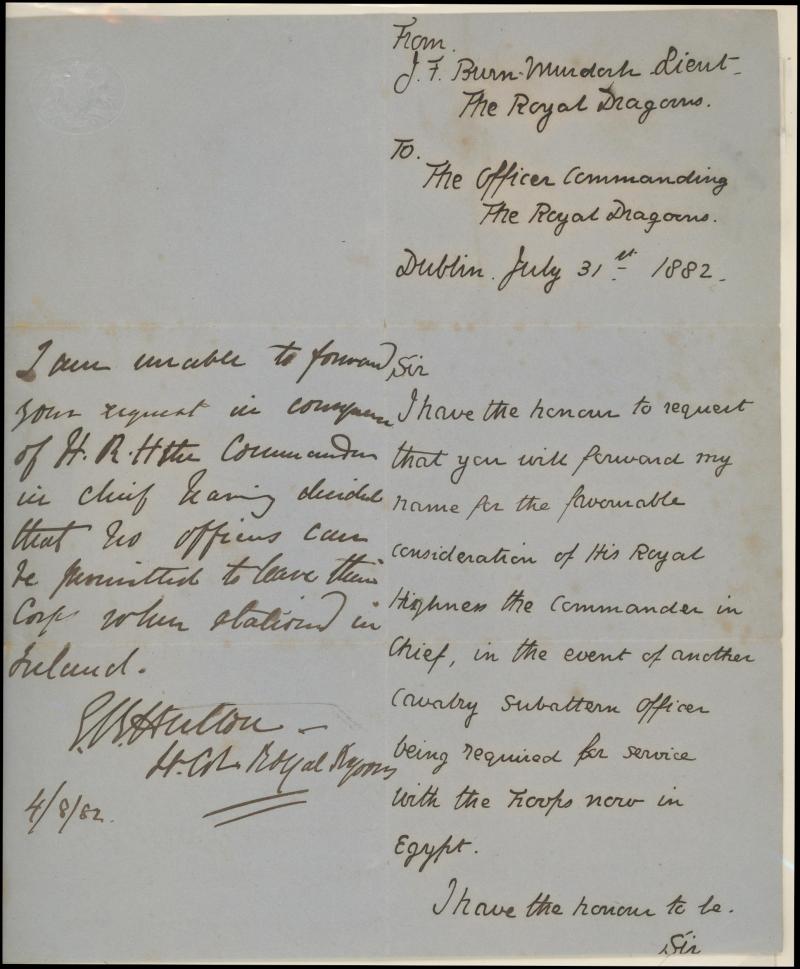 From.
J. F. Burn-Murdoch Lieut-
The Royal Dragoons.
To.
The Officer Commanding
The Royal Dragoons.
Dublin. July 31st 1882.
Sir
I have the honour to request
that you will forward my
name for the favourable
consideration of His Royal
Highness the Commander in
Chief, in the event of another
Cavalry Subaltern Officer
being required for service
with the Troops now in
Egypt.
I have the honour to be.
Sir
I am unable to forward
your request in consequence
of H.R.H the Commander
in chief having decided
that no officers can
be permitted to leave their
Corps when stationed in
Ireland.
Hutton -
Lt. Col. Royal Dgoons
4/8/82.